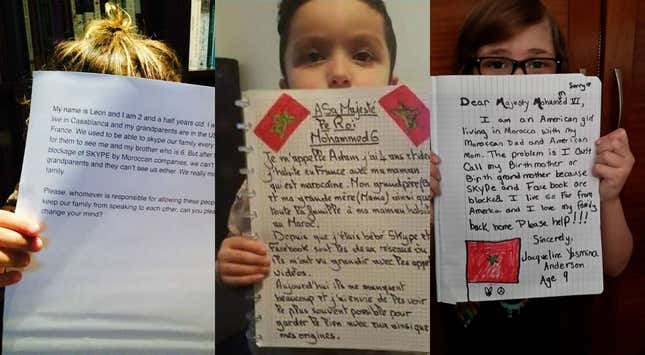 My name is Leon and I am 2 and a half years old. I
live in Casablanca and my grandparents are in the
France. We used to be able to skype our family every
for them to see me and my brother who is 6. But after
blockage of SKYPE by Moroccan companies, we can't
grandparents and they can't see us either. We really m
family.
Please, whomever is responsible for allowing these peop
keep our family from speaking to each other, can you plea
change your mind?
A Sa Majesté
le Roi
Mohammed 6
Je m'appelle Adam, j'ai 4 ans et de
j'habite en France avec ma maman
qui est marocaine. Mon grand père
et ma grande mère (Mama) ainsi que
toute la famille à ma maman habi
au Maroc.
Depuis que j'étais bébé Skype et
Facebook sont les deux réseaux où
ils m'ont vu grandir avec les appe
vidéos.
Aujourd'hui ils me manquent
beaucoup et j'ai envie de les voir
le plus souvent possible pour
garder le lien avec eux ainsi que
mes origines.
Sorry
Dear Majesty Mohamed VI,
I am an American girl
living in Morocco with my
Moroccan Dad and American
Mom. The problem is I Can't
Call my Birthmother or
Birth grandmother because
Skype and Face book are
blocked. I live so far from
America and I love my family
back home. Please help!!!
Sincerely,
Jacqueline Yasmina
Anderson
Age 9